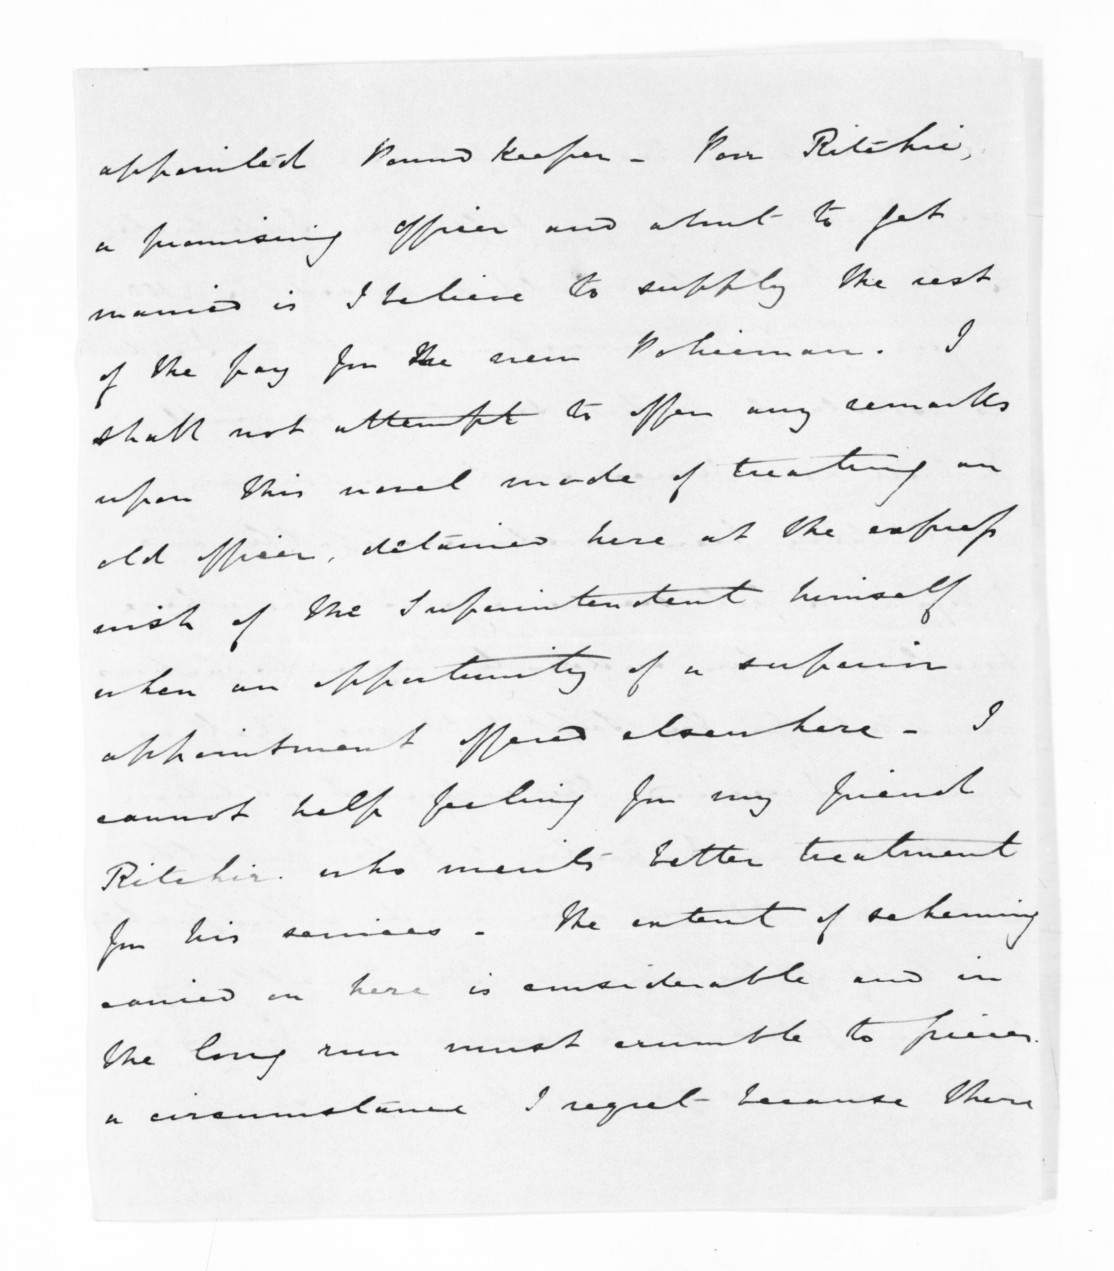 appointed Pound Keeper - Poor Ritchie,
a promising officer and about to get
married is I believe to supply the rest
of the pay for the new Policeman. I
shall not attempt to offer any remarks
upon this novel mode of treating an
old officer, detained here at the express
wish of the Superintendent himself
when an opportunity of a superior
appointment offered elsewhere - I
cannot help feeling for my friend
Ritchie. who merits better treatment
for his services - The extent of scheming
carried on here is considerable and in
the long run must crumble to pieces.
a circumstance I regret because there